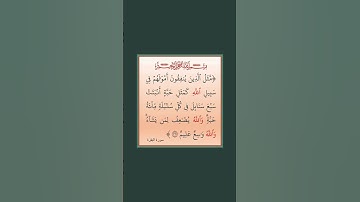 ﴿مَّثَلُ الَّذِينَ يُنفِقُونَ أَمْوَالَهُمْ فِي
سَبِيلِ اللَّهِ كَمَثَلِ حَبَّةٍ أَنبَتَتْ
سَبْعَ سَنَابِلَ فِي كُلِّ سُنبُلَةٍ مِّائَةُ
حَبَّةٍ وَاللَّهُ يُضَاعِفُ لِمَن يَشَاءُ
وَاللَّهُ وَاسِعٌ عَلِيمٌ﴾
سورة البقرة